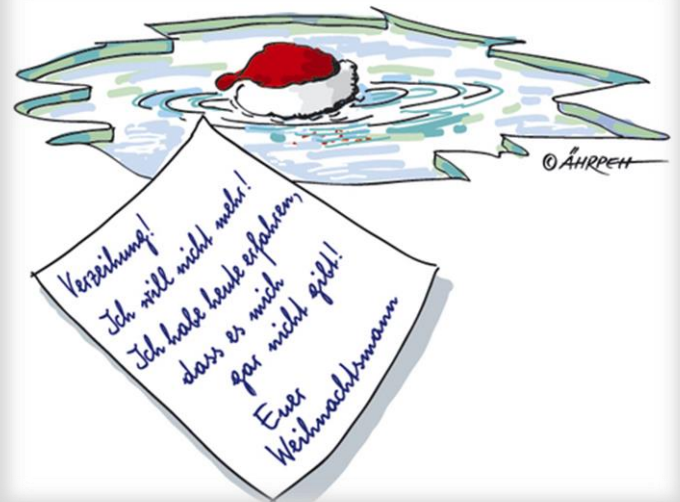 © ÄHRPEH
Verzeihung!
Ich will nicht mehr!
Ich habe heute erfahren,
dass es mich
gar nicht gibt!
Euer
Weihnachtsmann